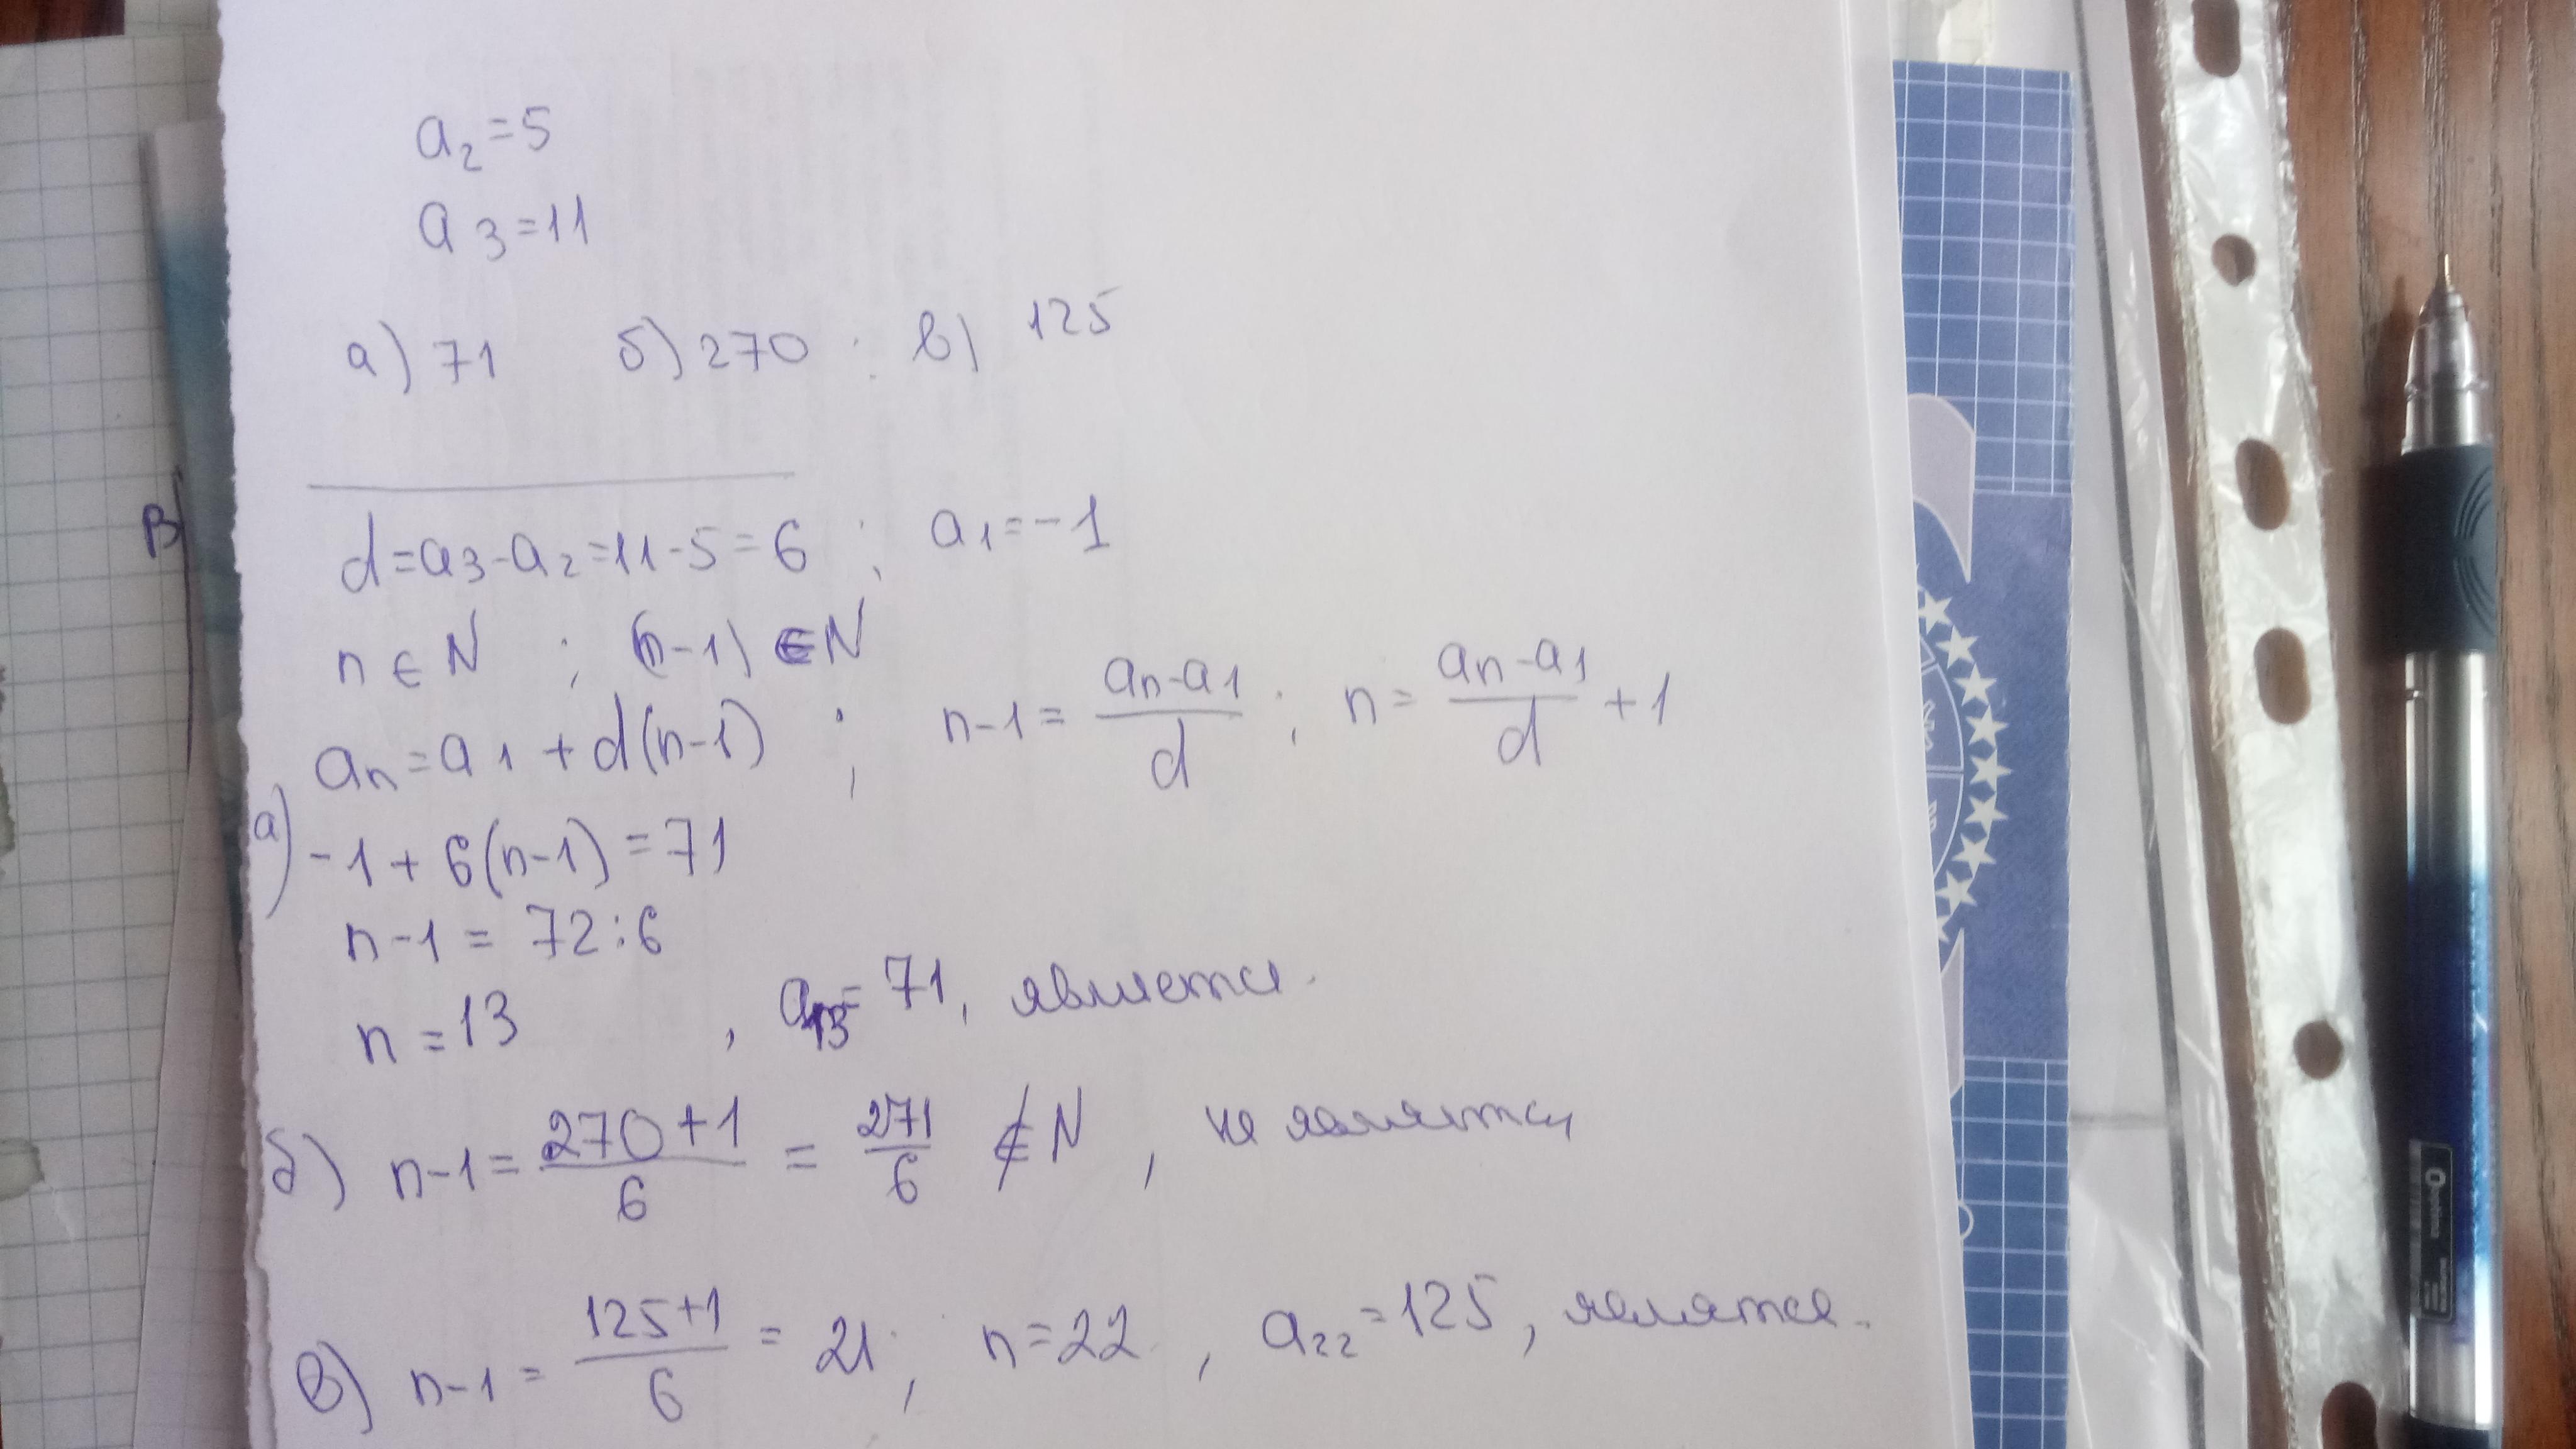 a₂=5
a₃=11
а) 71 б) 270 ; в) 125
d=a₃-a₂=11-5=6 ; a₁=-1
n∈N ; (n-1)∈N
aₙ=a₁+d(n-1) ; n-1=(aₙ-a₁)/d ; n=(aₙ-a₁)/d+1
а) -1+6(n-1)=71
n-1=72:6
n=13 , a₁₃=71, является.
б) n-1=(270+1)/6=271/6 ∉N , не является
в) n-1=(125+1)/6=21; n=22 , a₂₂=125, является.
В)